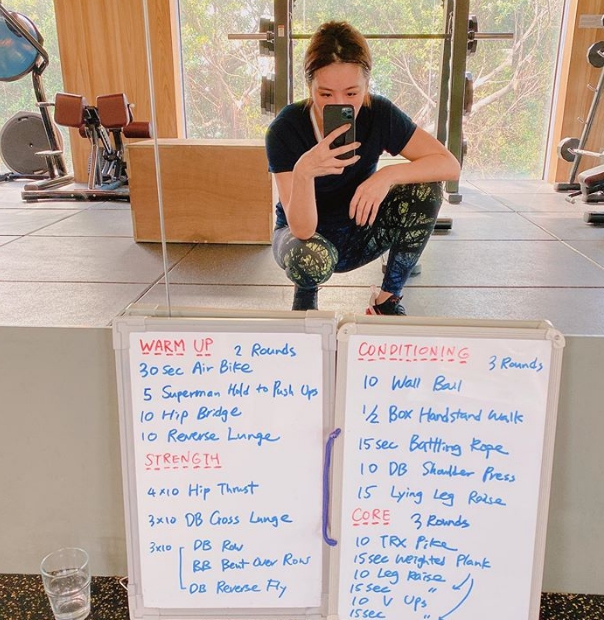 WARM UP 2 Rounds
30 sec Air Bike
5 Superman Hold to Push Ups
10 Hip Bridge
10 Reverse Lunge
STRENGTH
4x10 Hip Thrust
3x10 DB Cross Lunge
3x10 DB Row
BB Bent Over Row
DB Reverse Fly
CONDITIONING 3 Rounds
10 Wall Ball
1/2 Box Handstand Walk
15sec Battling Rope
10 DB Shoulder Press
15 Lying Leg Raise
CORE 3 Rounds
10 TRX Pike
15sec Weighted Plank
10 Leg Raise
15sec "
10 V Ups
15sec "